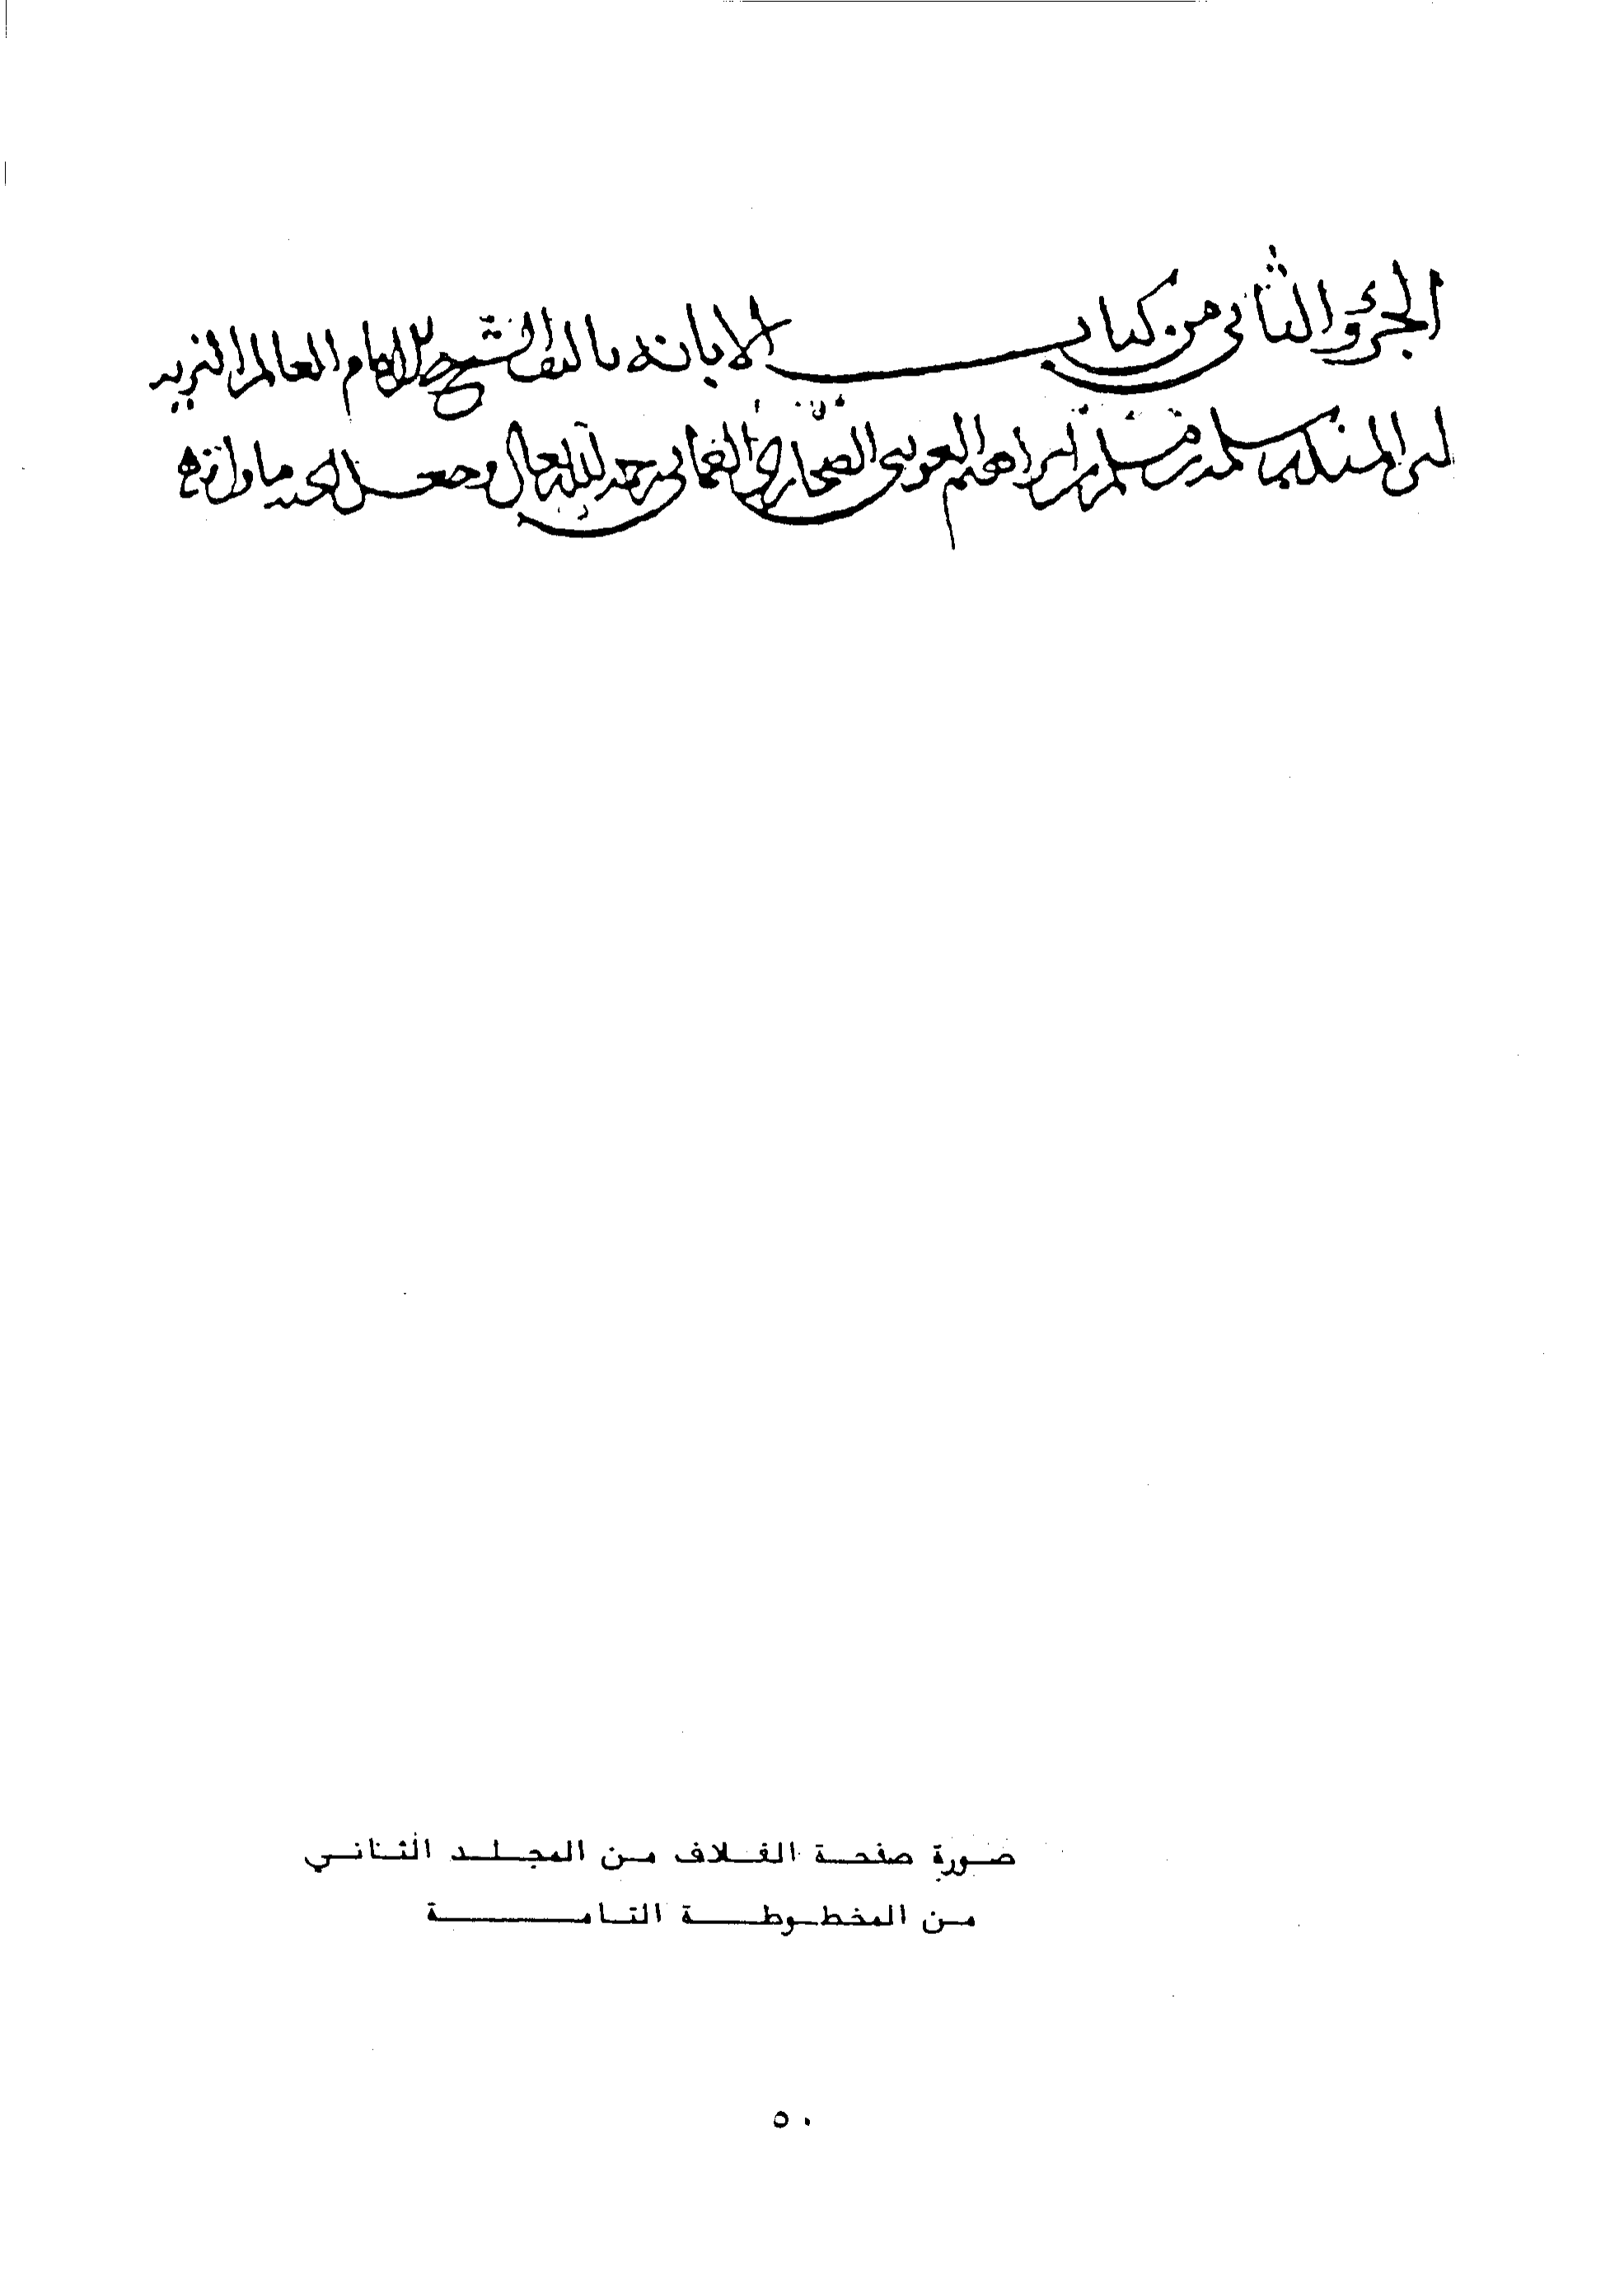 الجزؤ الثاني من كتاب الابانه تاليف الشيخ الامام العالم النزيه
ابي المنذر سلمه بن مسلم بن ابراهيم العوتبي الصحاري العماني رحمه الله تعالى وجعل الجنه ماواه
صورة صفحة الغلاف من المجلد الثاني
من المخطوطة التامة
٥٠